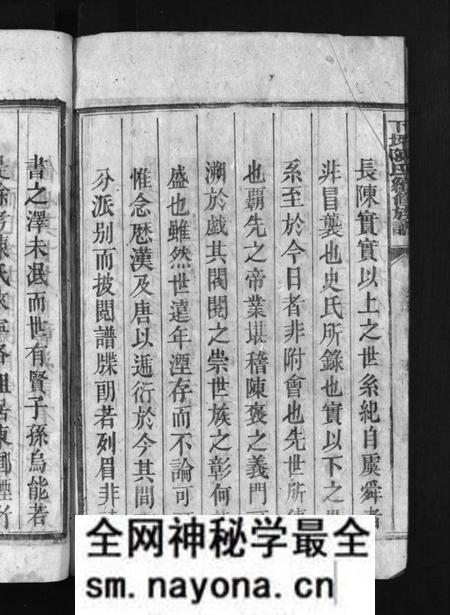 下坪陳氏續修族譜
長陳實實以上之世系紀自虞舜者
非冒襲也史氏所錄也實以下之世
系至於今日者非附會也先世所
也霸先之帝業堪稽陳褒之義門
溯於戲其閥閱之崇世族之彰何
盛也雖然世遠年湮存而不論可
惟念歷漢及唐以遞衍於今其間
分派别而披閱譜牒朗若列眉非
書之澤未泯而世有賢子孫烏能若
全网神秘学最全
sm.nayona.cn